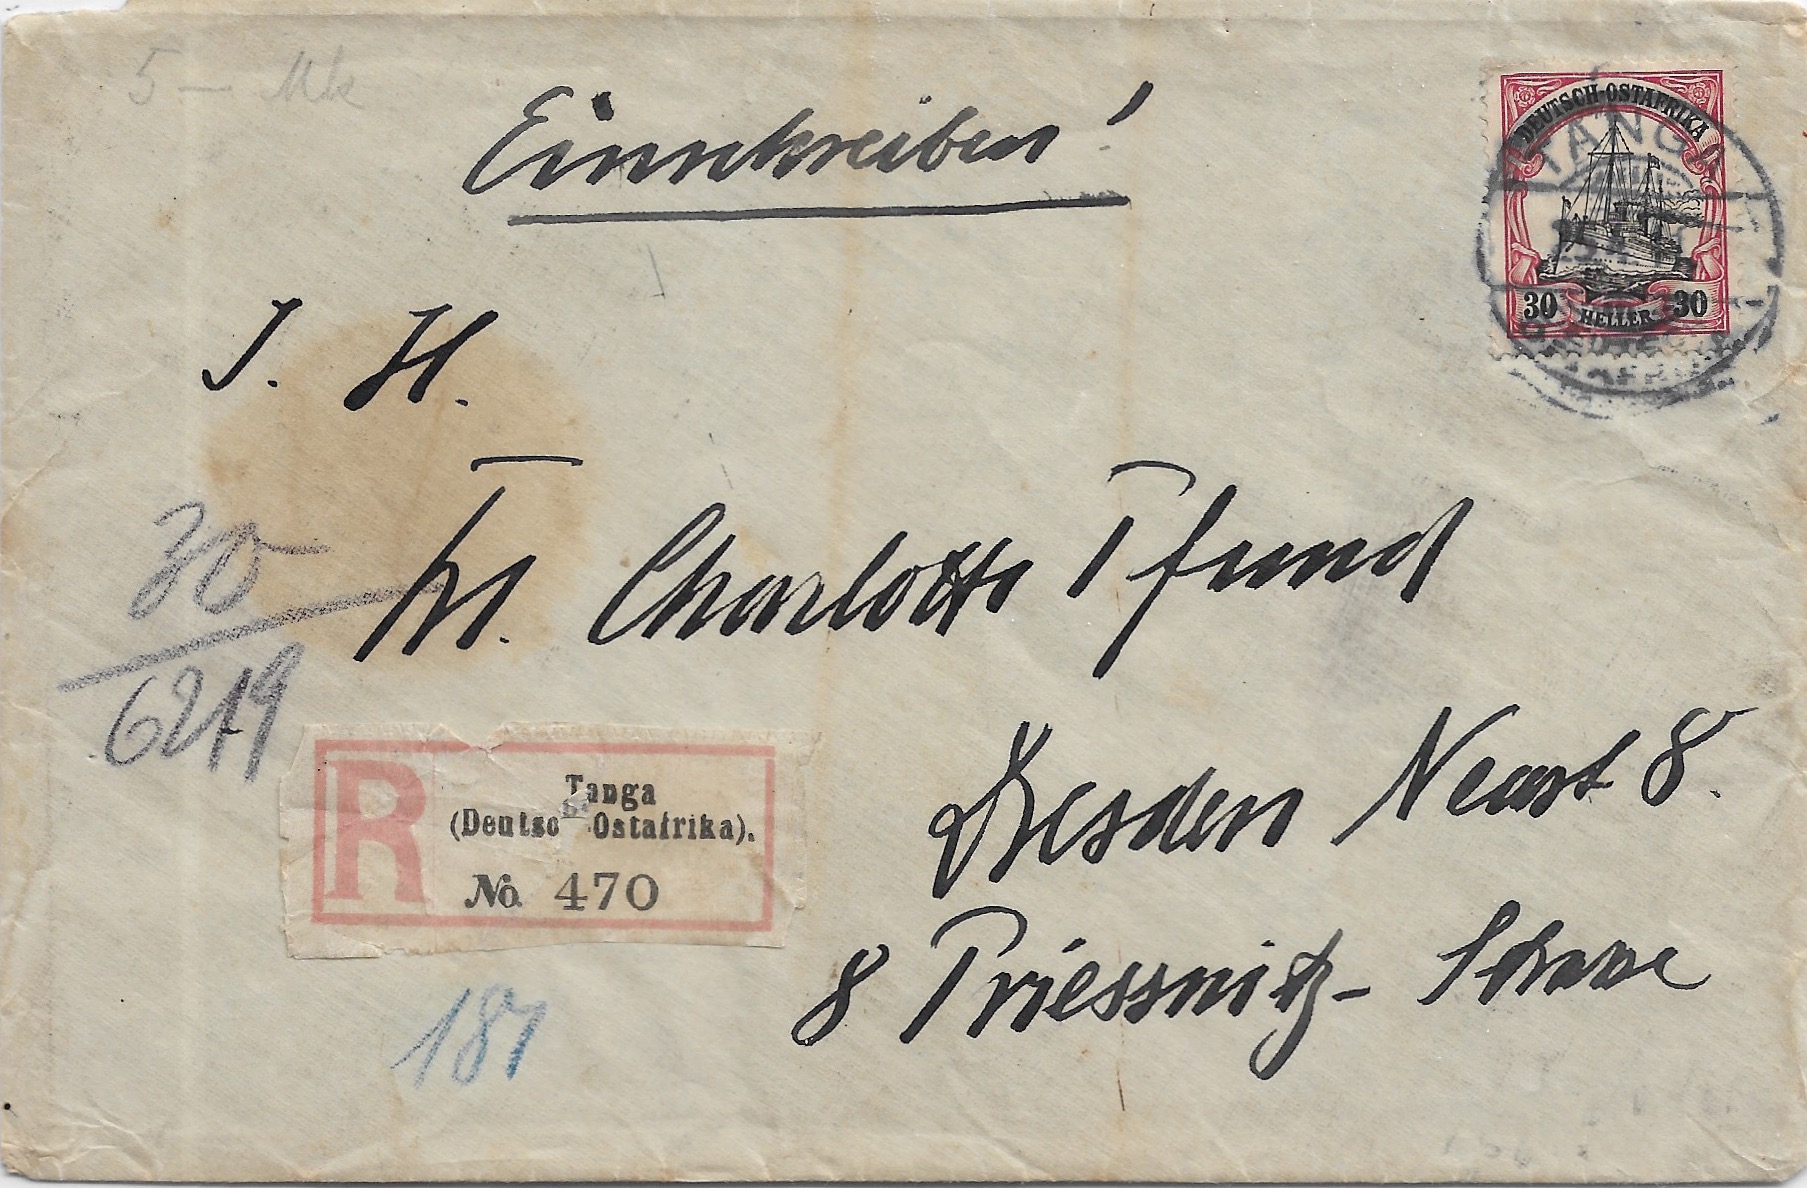 5 – Mk
Einschreiben!
DEUTSCH-OSTAFRIKA
TANGA
30 HELLER 30
I. H.
Frl. Charlotte Pfund
30
6219
R
Tanga
(Deutsc Ostafrika).
No. 470
Dresden Neust 8.
8 Priessnitz- Strasse
187